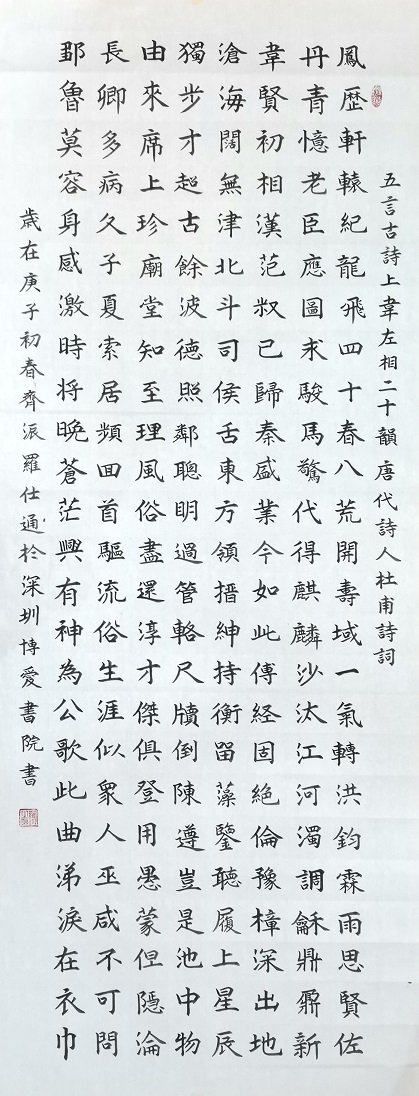 五言古詩上韋左相二十韻唐代詩人杜甫詩詞
鳳歷軒轅紀龍飛四十春八荒開壽域一氣轉洪鈞霖雨思賢佐
丹青憶老臣應圖求駿馬驚代得麒麟沙汰江河濁調龢鼎鼐新
韋賢初相漢范叔已歸秦盛業今如此傳経固絕倫豫樟深出地
滄海闊無津北斗司侯舌東方領搢紳持衡留藻鑒聽履上星辰
獨步才超古餘波德照鄰聰明過管輅尺牘倒陳遵豈是池中物
由來席上珍廟堂知至理風俗盡還淳才傑俱登用愚蒙但隱淪
長卿多病久子夏索居頻回首驅流俗生涯似眾人巫咸不可問
鄒魯莫容身感激時将晚蒼茫興有神為公歌此曲涕淚在衣巾
歲在庚子初春齊派羅仕通於深圳博愛書院書